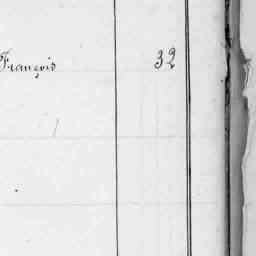 François 32